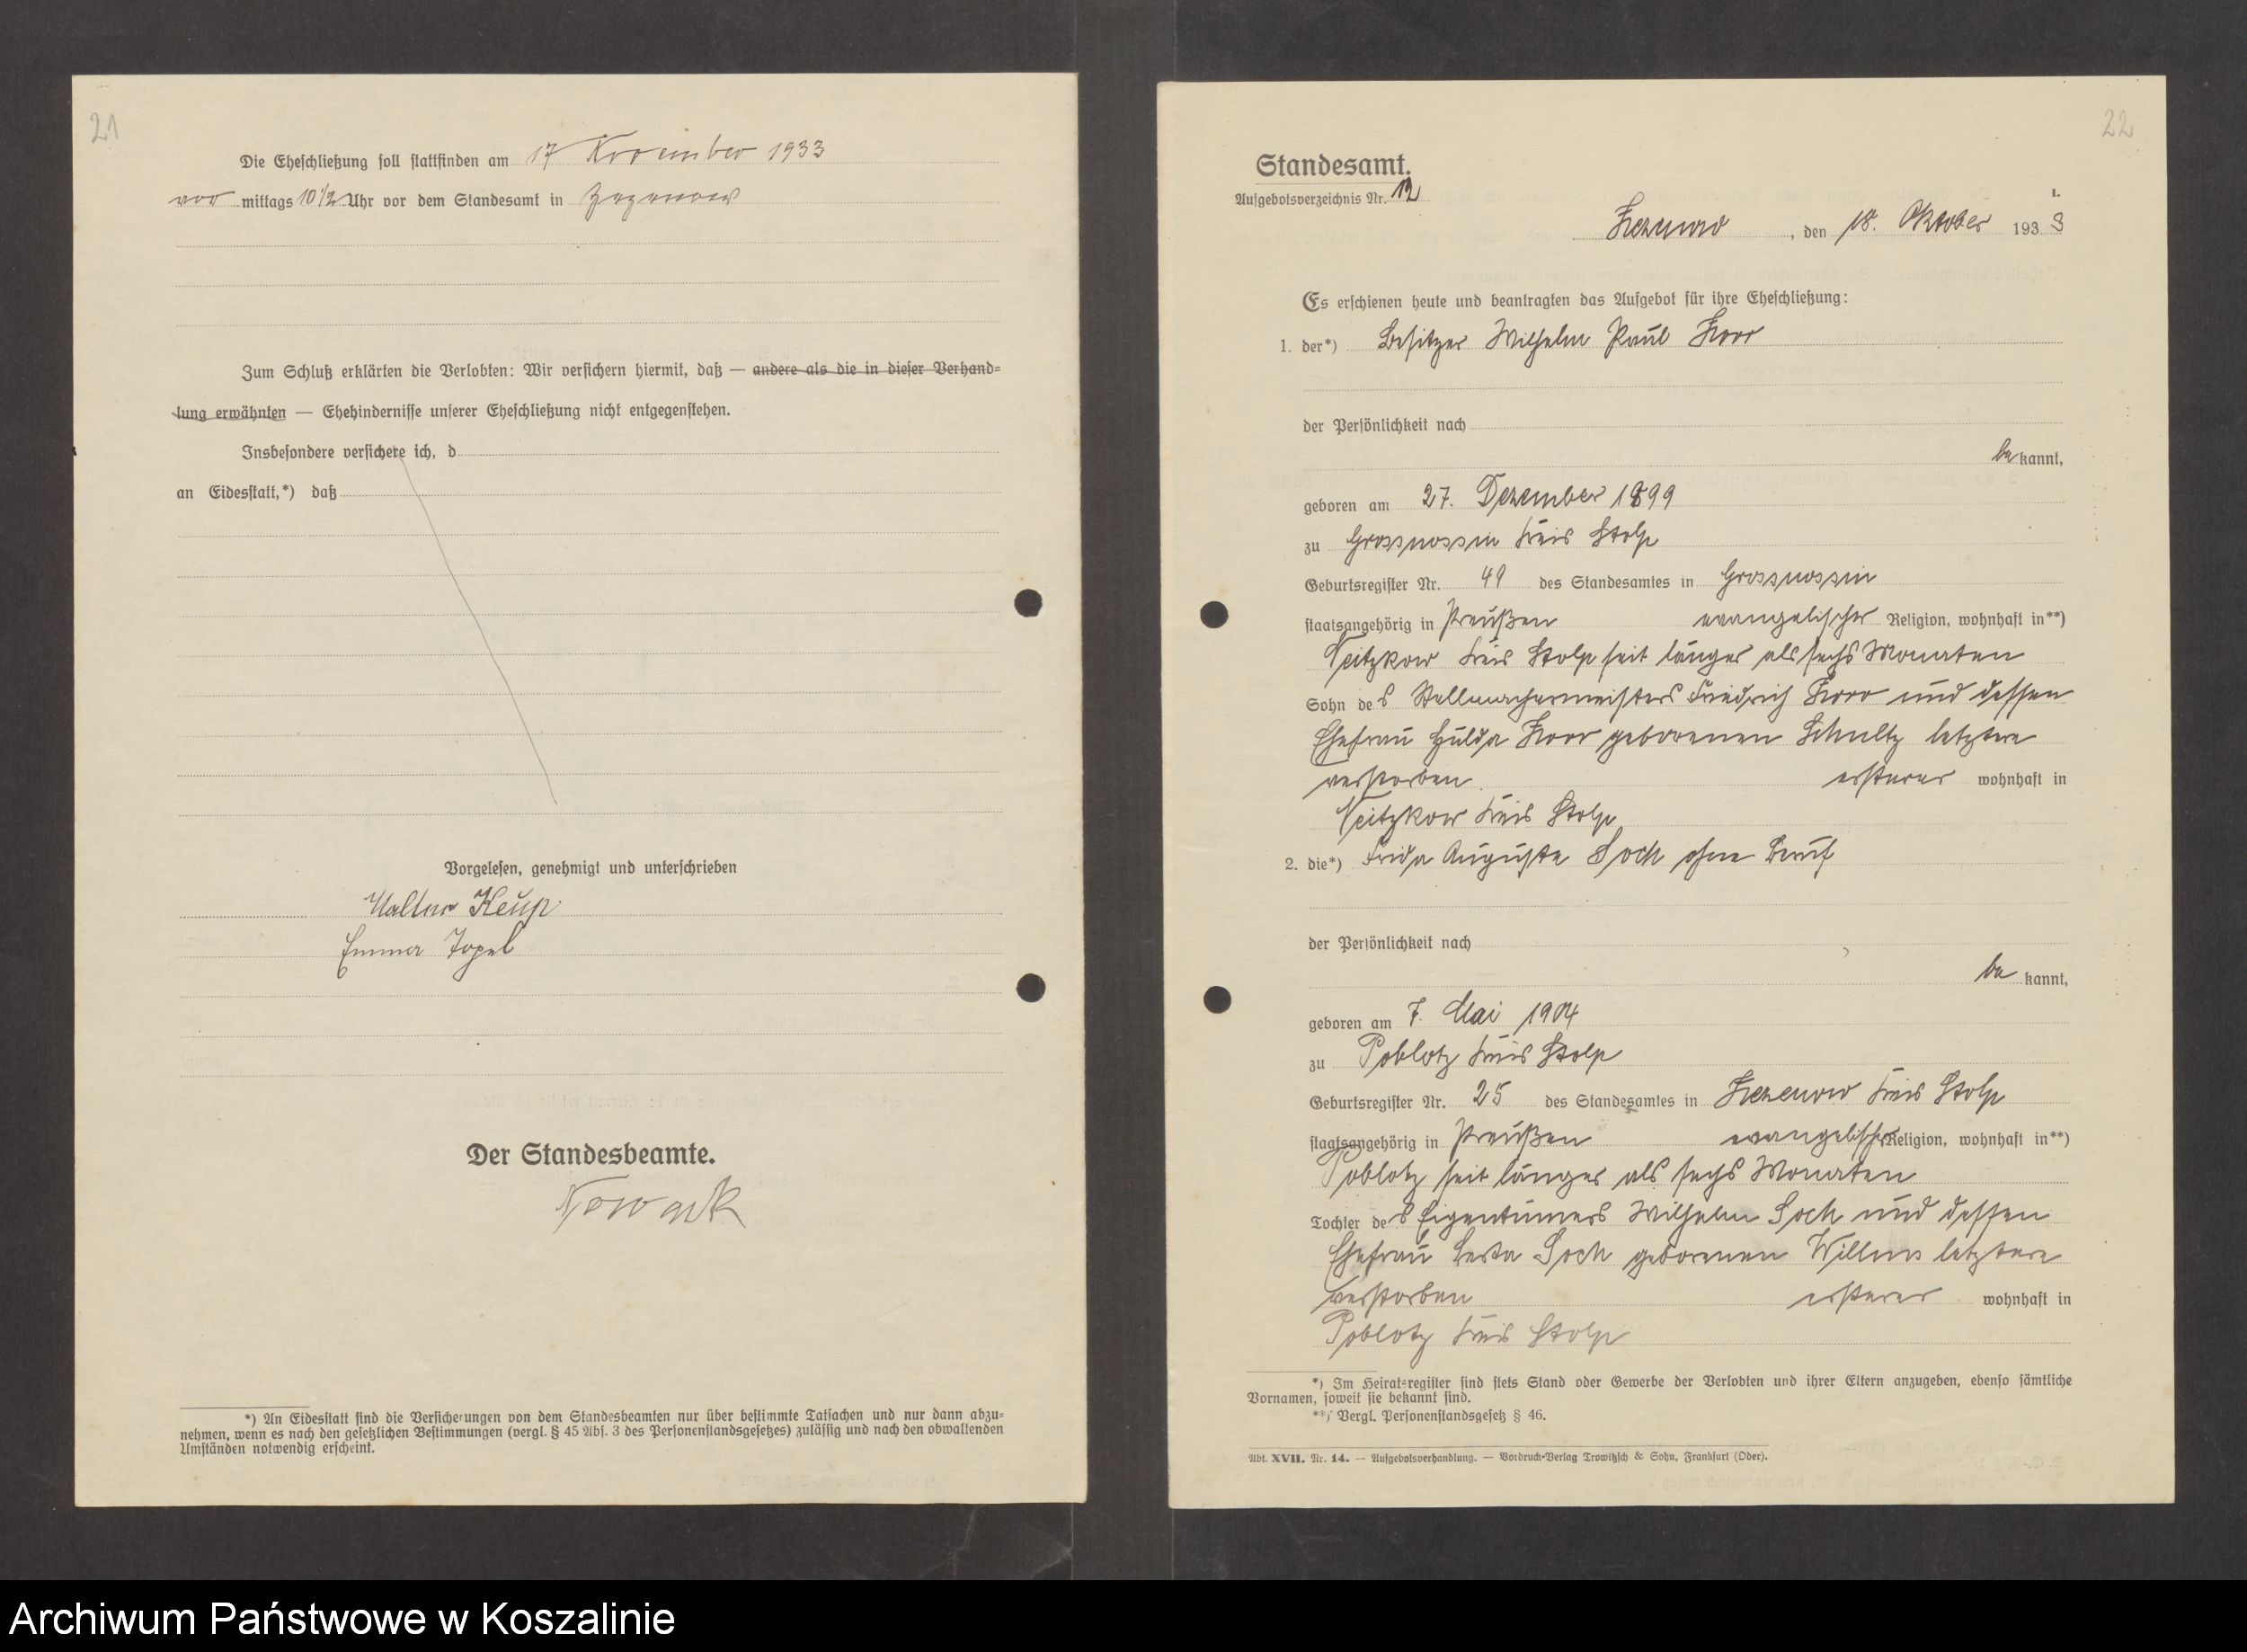 21
Die Eheschließung soll stattfinden am 17 November 1933
vor mittags 10 1/2 Uhr vor dem Standesamt in Zezenow
Zum Schluß erklärten die Verlobten: Wir versichern hiermit, daß — andere als die in dieser Verhand-
lung erwähnten — Ehehindernisse unserer Eheschließung nicht entgegenstehen.
Insbesondere versichere ich, d
an Eidesstatt,*) daß
Vorgelesen, genehmigt und unterschrieben
Walter Keup
Emma Topel
Der Standesbeamte.
Nowack
*) An Eidesstatt sind die Versicherungen von dem Standesbeamten nur über bestimmte Tatsachen und nur dann abzu-
nehmen, wenn es nach den gesetzlichen Bestimmungen (vergl. § 45 Abs. 3 des Personenstandsgesetzes) zulässig und nach den obwaltenden
Umständen notwendig erscheint.
22
Standesamt.
Aufgebotsverzeichnis Nr. 12
1.
Zezenow, den 18. Oktober 1933
Es erschienen heute und beantragten das Aufgebot für ihre Eheschließung:
1. der*) Besitzer Wilhelm Paul
der Persönlichkeit nach
be kannt,
geboren am 27. Dezember 1899
zu Grossnossin Kreis Stolp
Geburtsregister Nr. 49 des Standesamtes in Grossnossin
staatsangehörig in Preußen evangelischer Religion, wohnhaft in**)
Neitzkow Kreis Stolp seit länger als sechs Monaten
Sohn des Stellmachermeisters Friedrich und dessen
Ehefrau Hulda geborenen Schultz letztere
verstorben ersterer wohnhaft in
Neitzkow Kreis Stolp
2. die*) Frida Auguste Sock ohne Beruf
der Persönlichkeit nach
be kannt,
geboren am 7. Mai 1904
zu Poblotz Kreis Stolp
Geburtsregister Nr. 25 des Standesamtes in Zezenow Kreis Stolp
staatsangehörig in Preußen evangelischer Religion, wohnhaft in**)
Poblotz seit länger als sechs Monaten
Tochter des Eigentümers Wilhelm Sock und dessen
Ehefrau Berta Sock geborenen Willms letztere
verstorben ersterer wohnhaft in
Poblotz Kreis Stolp
*) Im Heiratsregister sind stets Stand oder Gewerbe der Verlobten und ihrer Eltern anzugeben, ebenso sämtliche
Vornamen, soweit sie bekannt sind.
**) Vergl. Personenstandsgesetz § 46.
Abt. XVII. Nr. 14. — Aufgebotsverhandlung. — Vordruck-Verlag Trowitzsch & Sohn, Frankfurt (Oder).
Archiwum Państwowe w Koszalinie